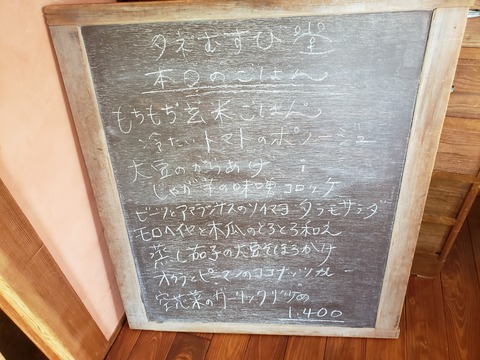 タネむすび堂
本日のごはん
もちもち玄米ごはん
冷たいトマトのポソージュ
大豆のからあげ
じゃが芋の味噌コロッケ
ビーツとアマランサスのソイマヨ タラモサラダ
モロヘイヤと木瓜のとろとろ和え
蒸し茄子の大豆そぼろかけ
オクラとピーマンのココナッツカレー
空芯菜のガーリック炒め
1,400